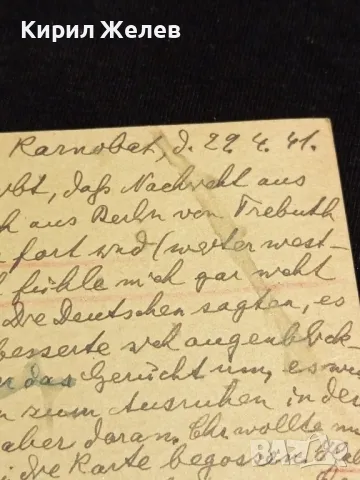 Кирил Желев
Karnobat, d. 29. 4. 41.
bt, daß Nachricht aus
h aus Berlin von Trebuth
fort und (weiter west-
fühle mich gar nicht
Die Deutschen sagten, es
besserte sich augenblick-
das Gerücht um, es
n zum Ausruhen in der
aber daran. Ihr wollte
die Karte begossen
bazar.bg